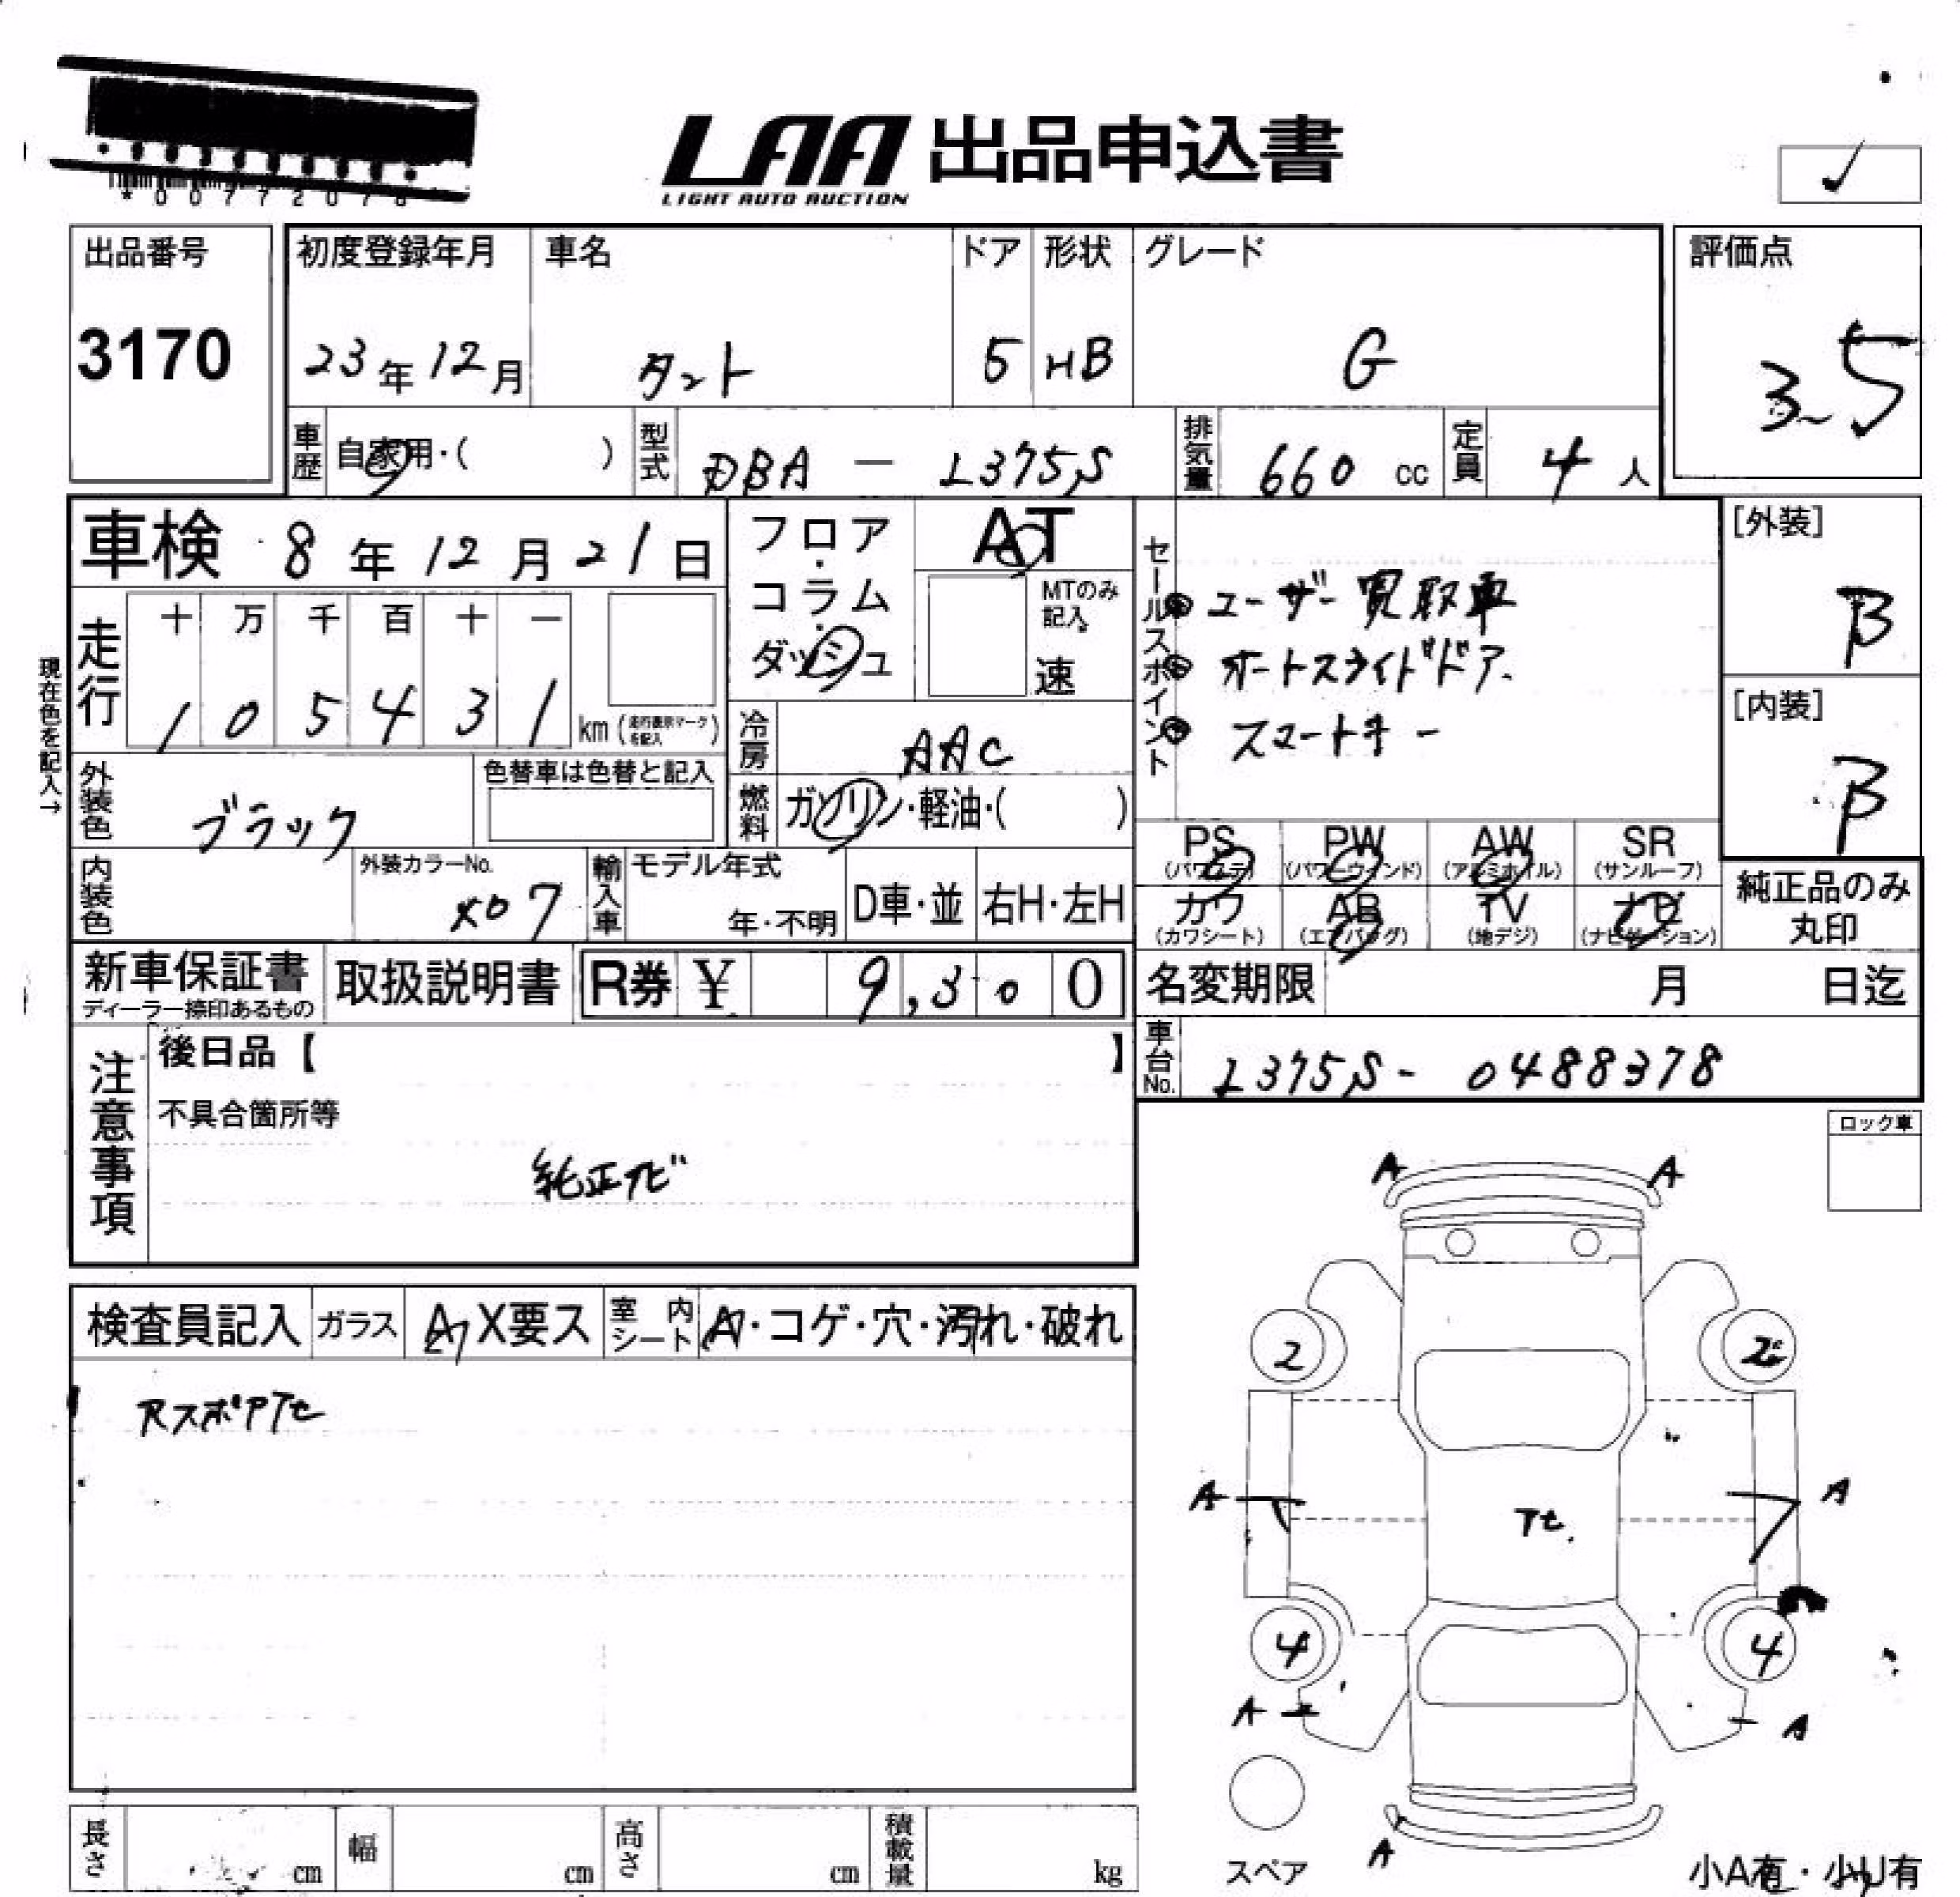 *00772078
LAA 出品申込書
LIGHT AUTO AUCTION
出品番号
3170
初度登録年月
23年12月
車名
タント
ドア
5
形状
HB
グレード
G
評価点
3.5
車歴
自家用・( )
型式
DBA － L375S
排気量
660 cc
定員
4人
車検 8年12月21日
フロア・コラム・ダッシュ
AT
MTのみ記入。
速
セールスポイント
ユーザー買取車
オートスライドドア.
スマートキー
[外装]
B
[内装]
B
現在色を記入→
走行
十 万 千 百 十 一
1 0 5 4 3 1 km (走行表示マークを記入)
冷房
AAC
燃料
ガソリン・軽油・( )
外装色
ブラック
色替車は色替と記入
内装色
外装カラーNo.
X07
輸入車
モデル年式
年・不明
D車・並
右H・左H
PS
(パワステ)
PW
(パワーウィンド)
AW
(アルミホイル)
SR
(サンルーフ)
カワ
(カワシート)
AB
(エアバッグ)
TV
(地デジ)
ナビ
(ナビゲーション)
純正品のみ
丸印
新車保証書
ディーラー捺印あるもの
取扱説明書
R券 ¥ 9,300
名変期限 月 日迄
車台No.
L375S- 0488378
注意事項
後日品【 】
不具合箇所等
純正ナビ
ロック車
検査員記入
ガラス
A,X要ス
室内シート
A・コゲ・穴・汚れ・破れ
RスポアTセ
A
A
2
2
A
A
Tセ.
4
4
A
A
A
スペア
小A有・小U有
長さ cm
幅 cm
高さ cm
積載量 kg